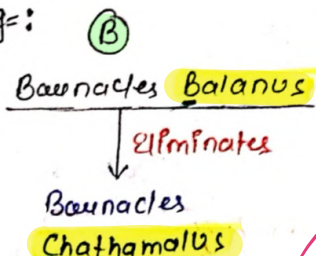 g=:
B
Barnacles Balanus
Eliminates
Barnacles
Chathamalus